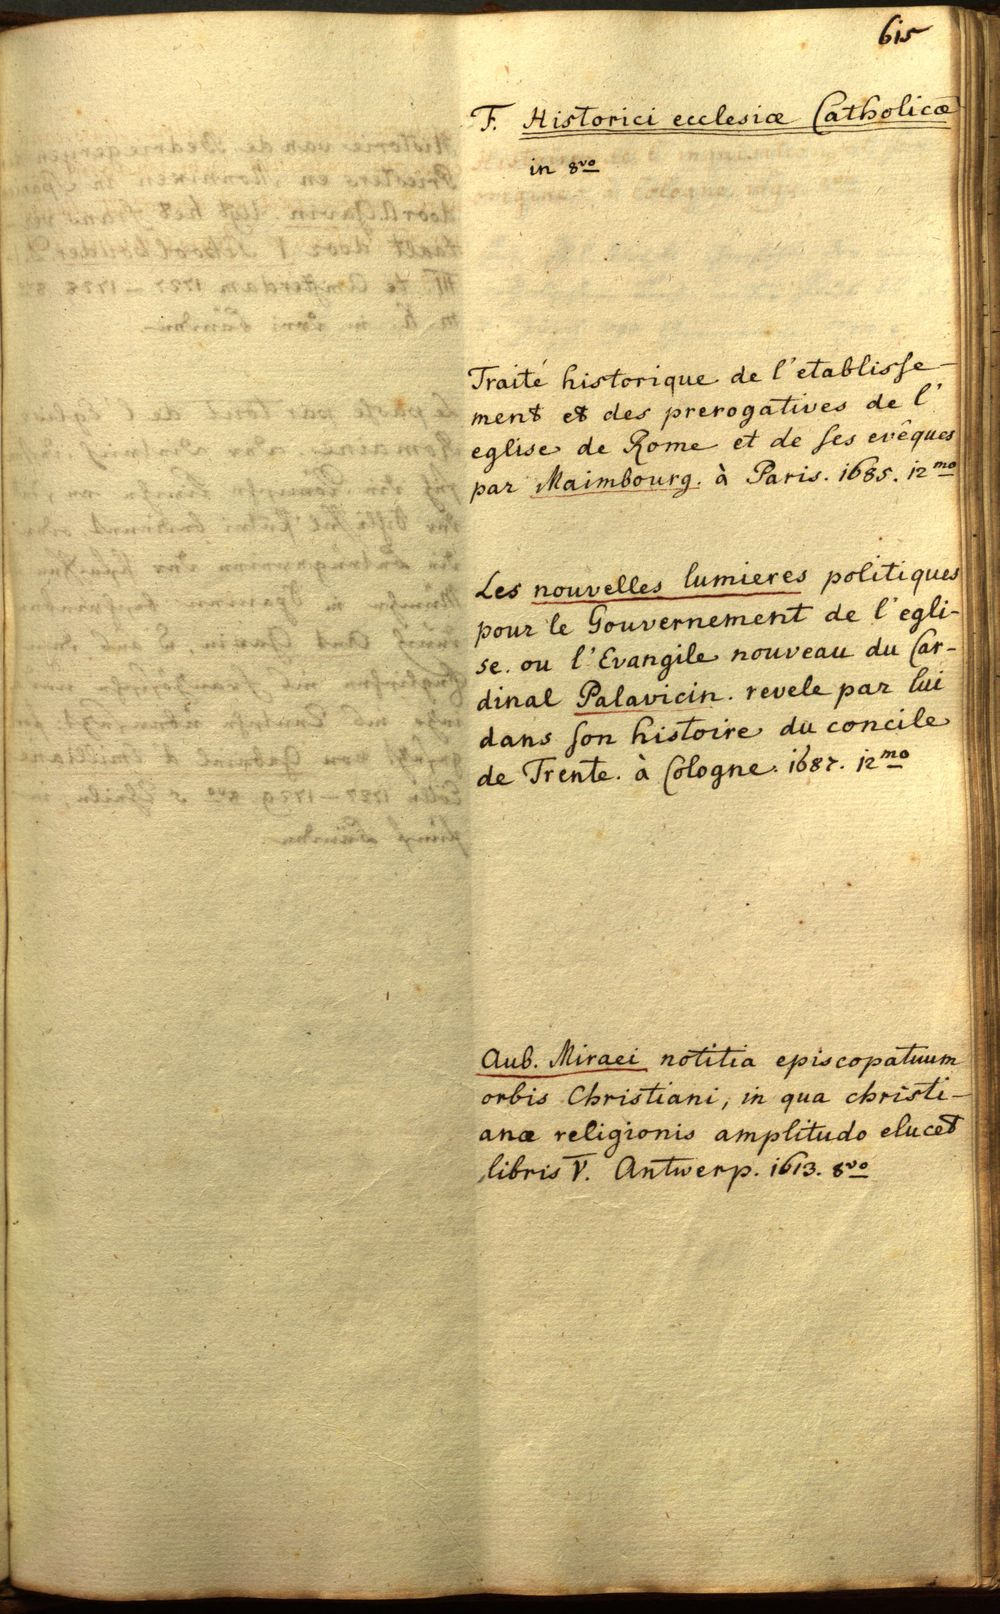 615
F. Historici ecclesiæ Catholicæ
in 8vo
Traité historique de l'etablisse-
ment et des prerogatives de l'
eglise de Rome et de ses evêques
par Maimbourg. à Paris. 1685. 12mo
Les nouvelles lumieres politiques
pour le Gouvernement de l'egli-
se. ou l'Evangile nouveau du Car-
dinal Palavicin. revele par lui
dans son histoire du concile
de Trente. à Cologne. 1687. 12mo
Aub. Miraei notitia episcopatuum
orbis Christiani, in qua christi-
anæ religionis amplitudo elucet
libris V. Antwerp. 1613. 8vo